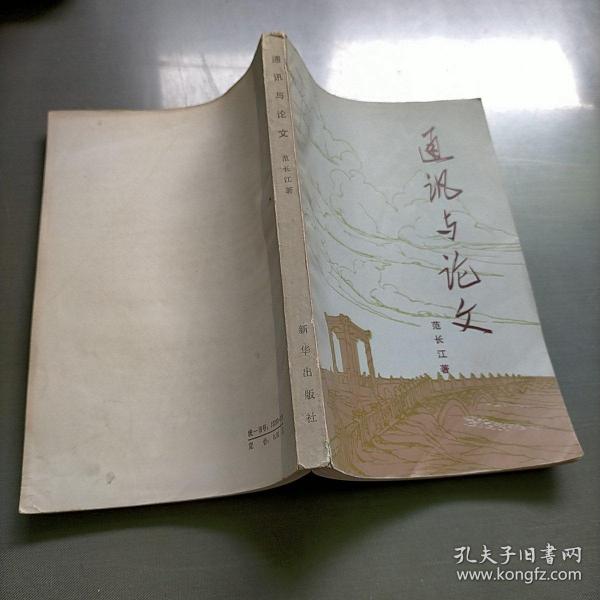 通讯与论文
范长江著
通讯与论文
范长江著
新华出版社
统一书号：
定价：
孔夫子旧书网
www.kongfz.com